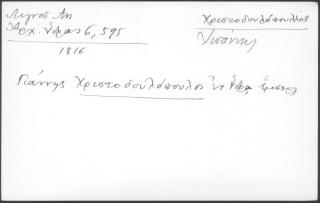 Λιγνού Αντ.
Ἀρχ. Ὕδρας 6, 595
1816
Χριστοδουλόπουλλος
Ἰωάννης
Γιάννης Χριστοδουλόπουλος ἐν Ὕδρᾳ